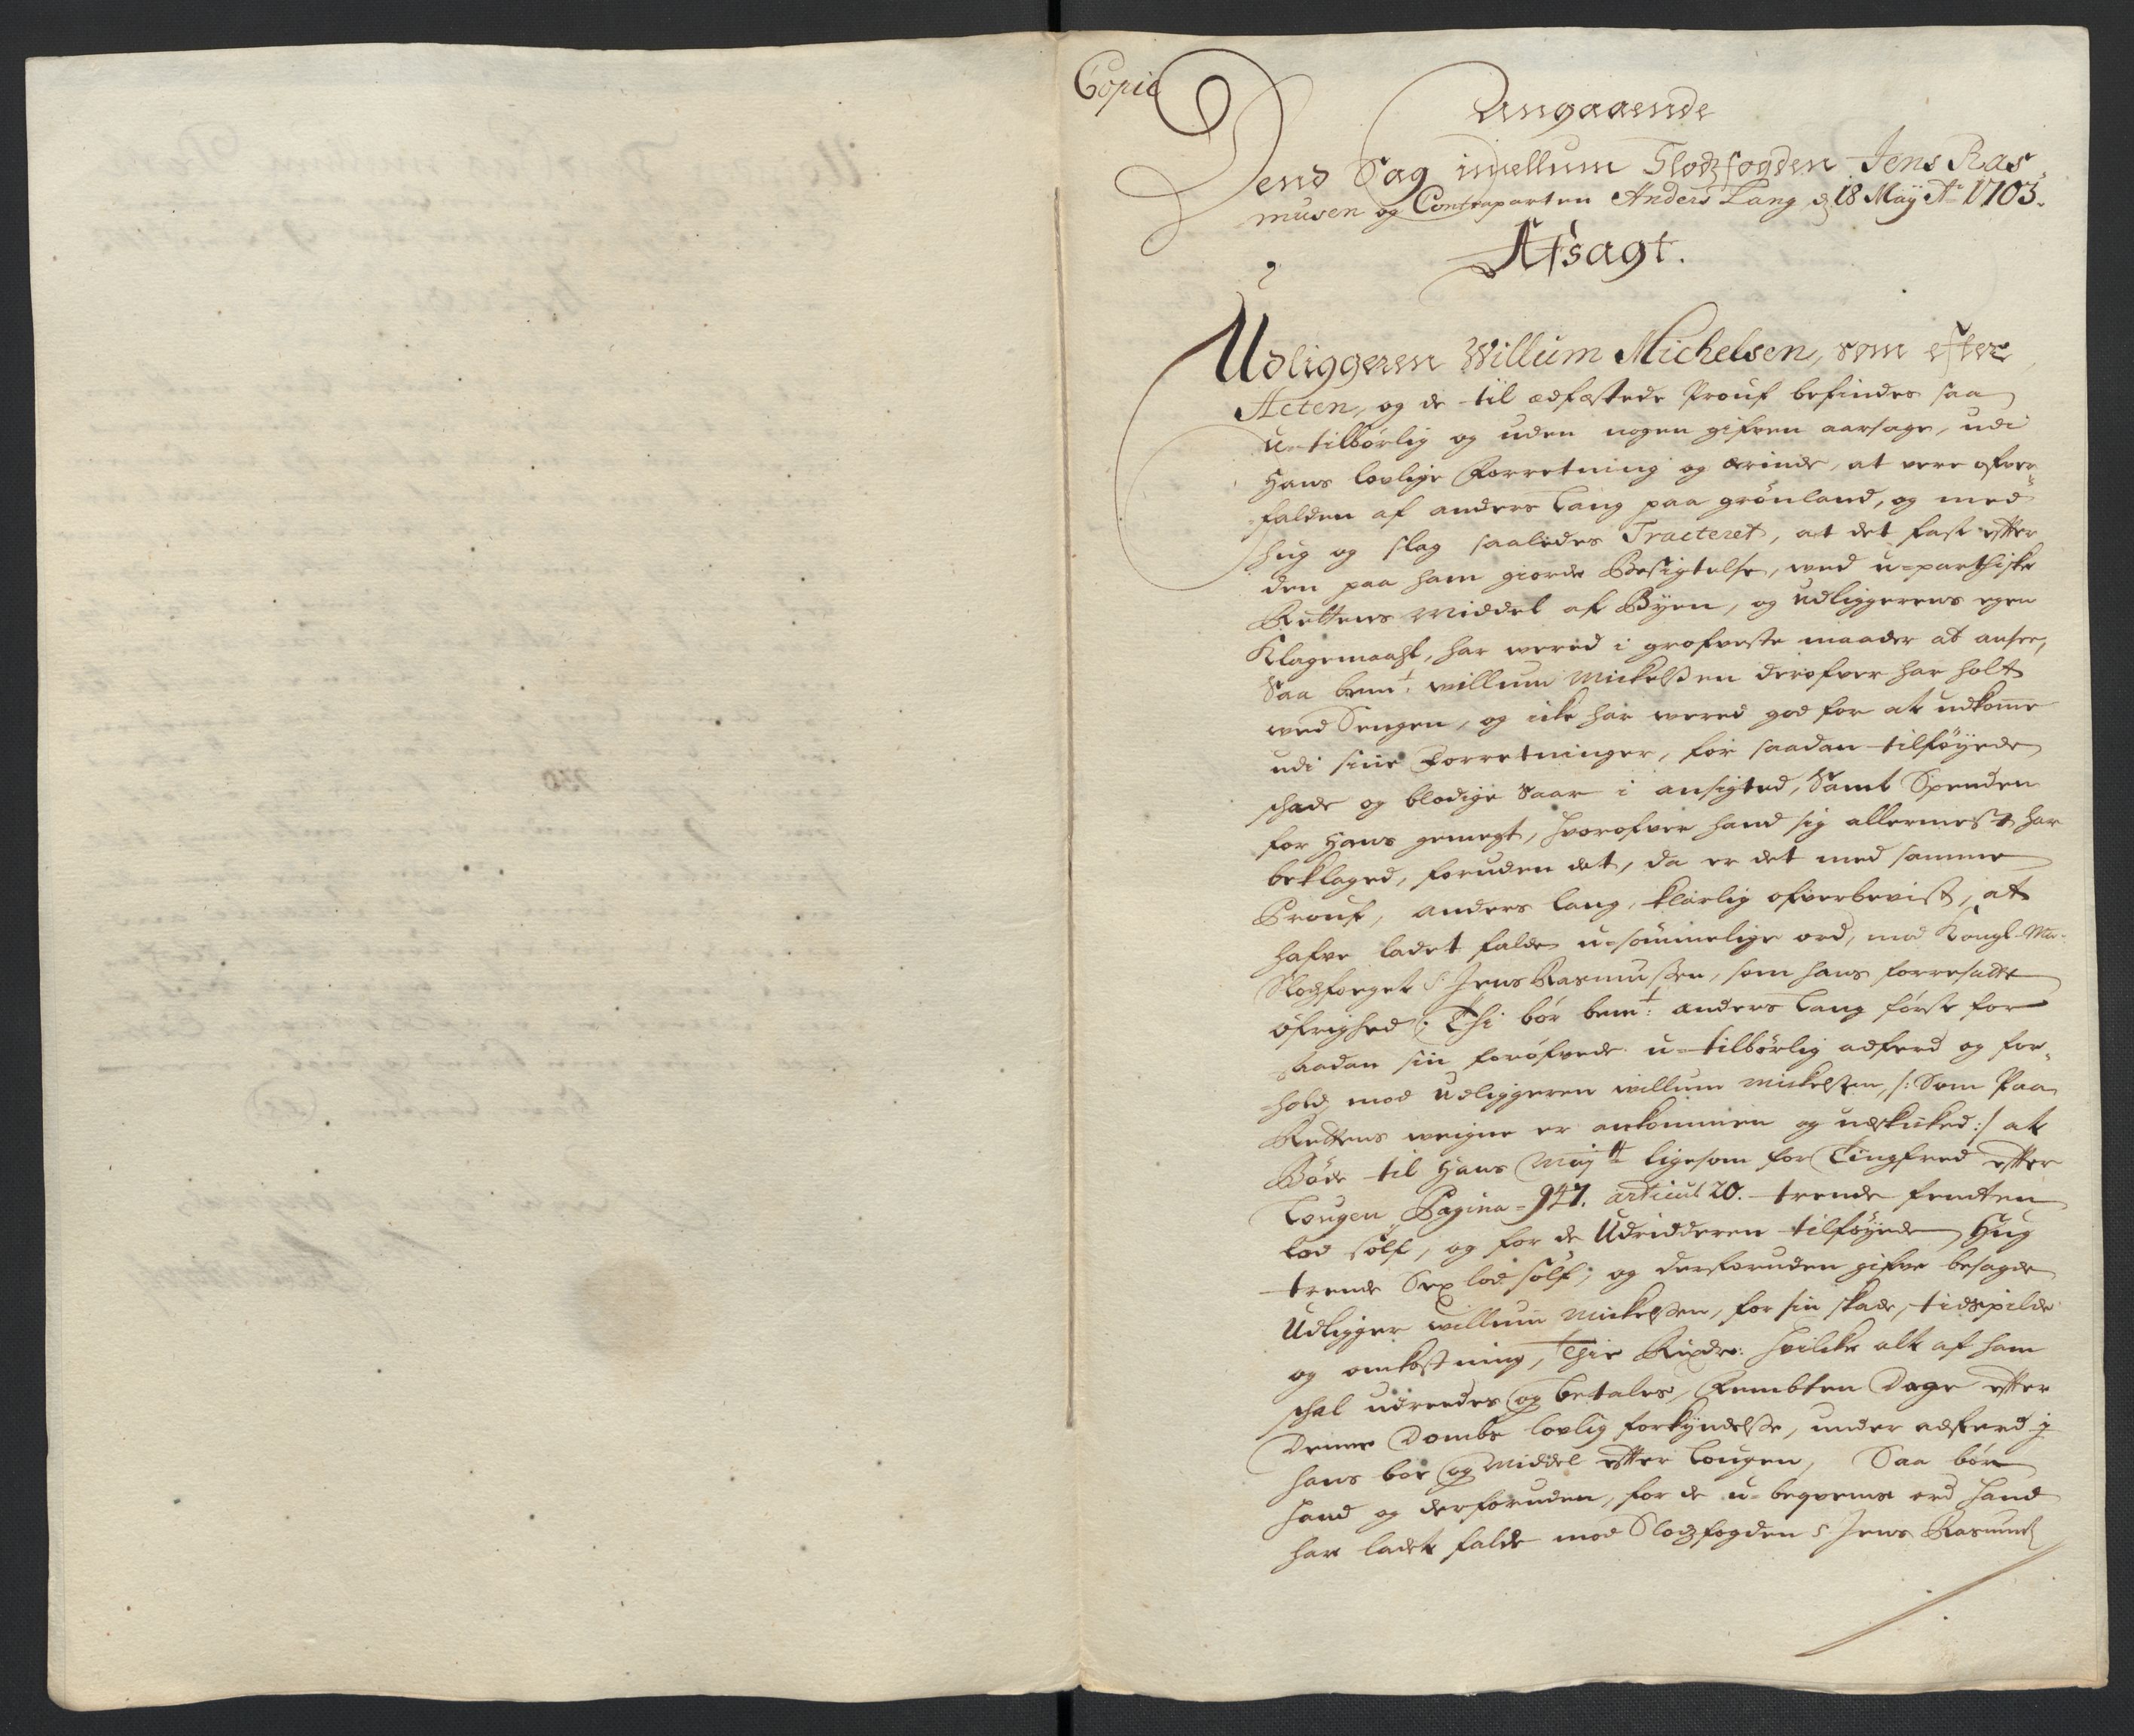 Copie
Angaaende
Dend Sag imellum Slodzfogden Jens Ras
musen og Contraparten Anders Lang d 18 Maÿ Ao 1703.
Afsagt.
Udliggeren Willum Michelsen, som efter
Acten, og de til ædfæstede Prouf befindes saa
u-tilbørlig og uden nogen gifven aarsage, udi
Hans lovlige Forretning og ærinde, at vere ofver¬
falden af anders Lang paa grønland, og med
hug og slag saaledes Tracteret, at det fast efter
den paa ham giorde Besigtelse, med u-parthiske
Rettens Middel af Byen, og Udliggerens egen
Klagemaahl, har wered i grofveste maader at ansee,
Saa bemt: willum Mickelsen derofver har holt
wed Sengen, og icke har wered god for at udkome
udi sine Forretninger, for saadan tilføyede
schade og blodige Saar i ansigted, Samt Spenden
for Hans gemegt, hvorofver hand sig allermest har
beklaged, foruden det, da er det med samme
Prouf, anders lang, klarlig ofverbevist, at
hafve ladet falde u-sømmelige ord, mod Kongl. Ma.
Slodzfoeget S: Jens Rasmussen, som hans forresatte
øfrighed; Thi bør bemt: anders Lang første for
saadan sin forøfvede u-tilbørlig adferd og for¬
hold, mod Udliggeren willum Mickelsen, /: Som Paa
Rettens weigne er ankommen og udskicked :/ at
Bøde til Hans Maytt ligesom for Tingfred efter
Lougen Pagina = 947. articul 20. trende femten
lod sølf, og for de Udridderen tilføyede Hug
trende Sex lod sølf; og derforuden gifve besagde
Udligger willum Mickelsen, for sin skade, tidspilde
og omkostning, Thie Rixdr: hvilcke alt af ham
schal udreedes og betales, Fembten Dage efter
Denne Dombs lovlig forkyndelse, under adferd j
hans boe og Middel efter Lougen, Saa bør
hand og derforuden, for de u-beqvemme ord hand
har ladet falde mod Slodzfogden S. Jens Rasmus